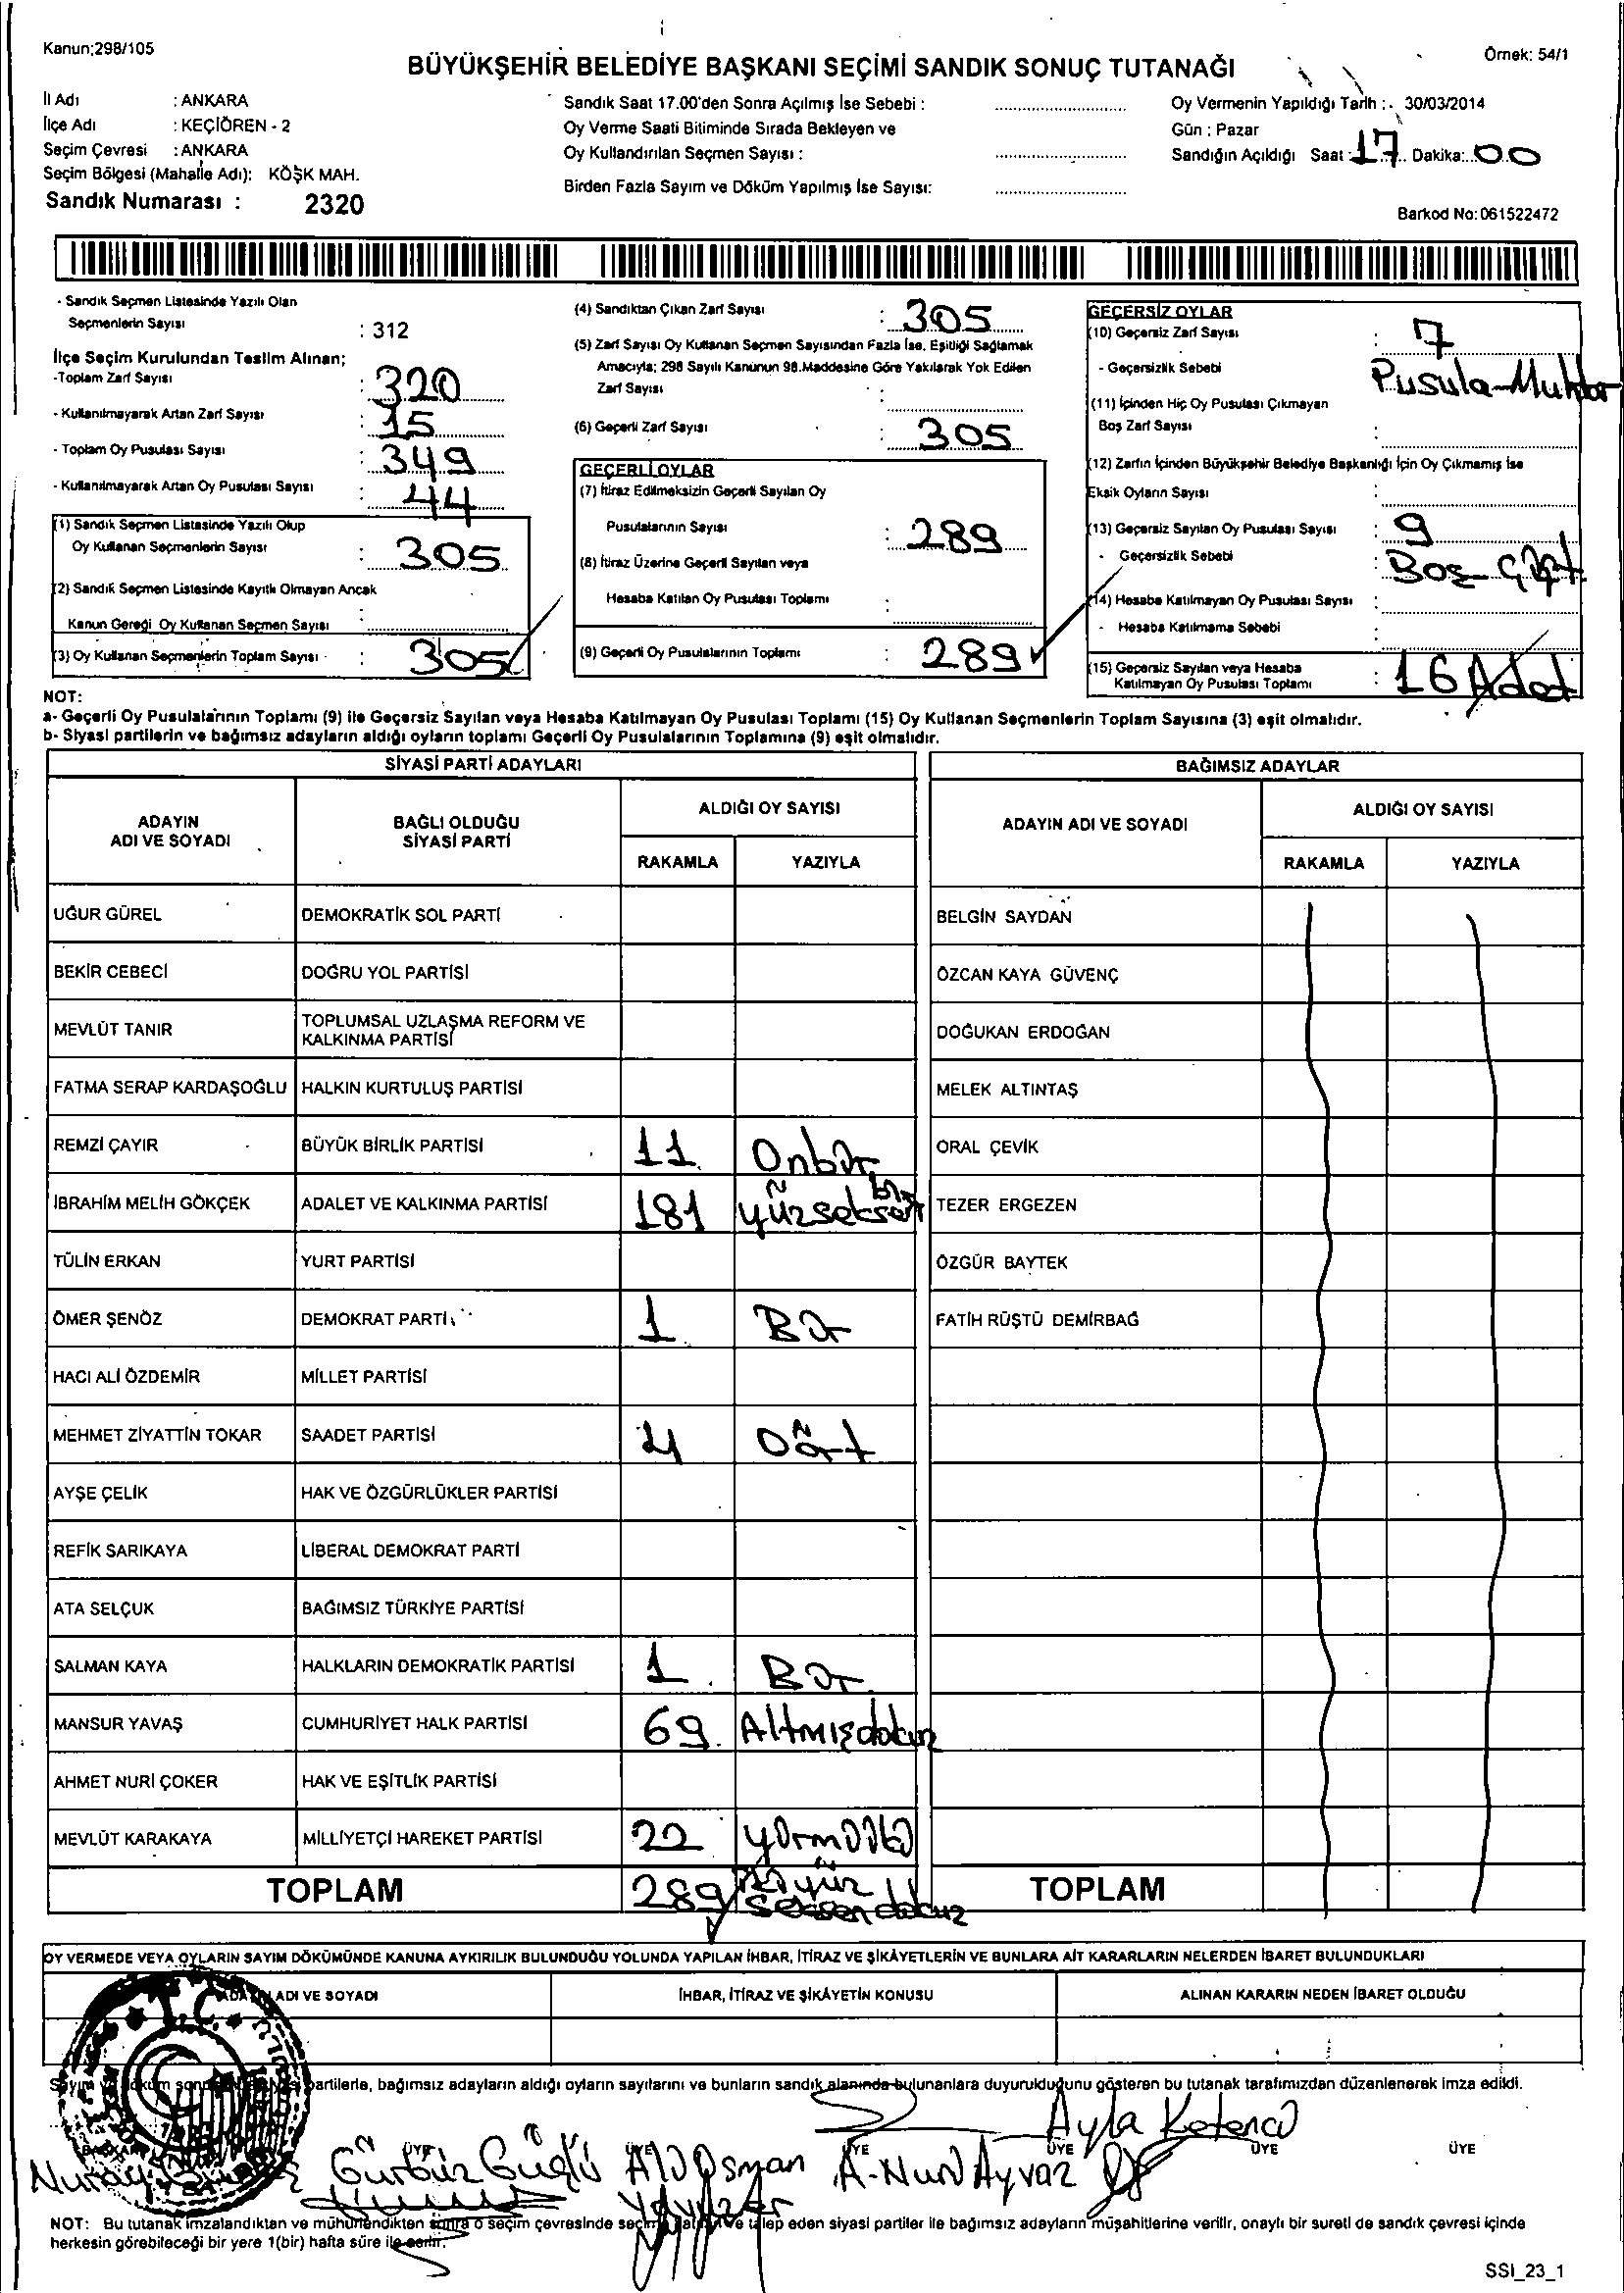 Kanun;298/105
Örnek: 54/1
BÜYÜKŞEHİR BELEDİYE BAŞKANI SEÇİMİ SANDIK SONUÇ TUTANAĞI
İl Adı : ANKARA
İlçe Adı : KEÇİÖREN - 2
Seçim Çevresi : ANKARA
Seçim Bölgesi (Mahalle Adı): KÖŞK MAH.
Sandık Numarası : 2320
Sandık Saat 17.00'den Sonra Açılmış İse Sebebi :
Oy Verme Saati Bitiminde Sırada Bekleyen ve
Oy Kullandırılan Seçmen Sayısı :
Birden Fazla Sayım ve Döküm Yapılmış İse Sayısı:
Oy Vermenin Yapıldığı Tarih : 30/03/2014
Gün : Pazar
Sandığın Açıldığı Saat : 17 Dakika: 00
Barkod No: 061522472
- Sandık Seçmen Listesinde Yazılı Olan
Seçmenlerin Sayısı : 312
İlçe Seçim Kurulundan Teslim Alınan;
-Toplam Zarf Sayısı : 320
- Kullanılmayarak Artan Zarf Sayısı : 15
- Toplam Oy Pusulası Sayısı : 349
- Kullanılmayarak Artan Oy Pusulası Sayısı : 44
(1) Sandık Seçmen Listesinde Yazılı Olup
Oy Kullanan Seçmenlerin Sayısı : 305
(2) Sandık Seçmen Listesinde Kayıtlı Olmayan Ancak
Kanun Gereği Oy Kullanan Seçmen Sayısı :
(3) Oy Kullanan Seçmenlerin Toplam Sayısı : 305
(4) Sandıktan Çıkan Zarf Sayısı : 305
(5) Zarf Sayısı Oy Kullanan Seçmen Sayısından Fazla İse, Eşitliği Sağlamak
Amacıyla; 298 Sayılı Kanunun 98.Maddesine Göre Yakılarak Yok Edilen
Zarf Sayısı :
(6) Geçerli Zarf Sayısı : 305
GEÇERLİ OYLAR
(7) İtiraz Edilmeksizin Geçerli Sayılan Oy
Pusulalarının Sayısı : 289
(8) İtiraz Üzerine Geçerli Sayılan veya
Hesaba Katılan Oy Pusulası Toplamı :
(9) Geçerli Oy Pusulalarının Toplamı : 289
GEÇERSİZ OYLAR
(10) Geçersiz Zarf Sayısı : 7
- Geçersizlik Sebebi : Pusula-Muhtar
(11) İçinden Hiç Oy Pusulası Çıkmayan
Boş Zarf Sayısı :
(12) Zarfın İçinden Büyükşehir Belediye Başkanlığı İçin Oy Çıkmamış İse
Eksik Oyların Sayısı :
(13) Geçersiz Sayılan Oy Pusulası Sayısı : 9
- Geçersizlik Sebebi : Boş Çift
(14) Hesaba Katılmayan Oy Pusulası Sayısı :
- Hesaba Katılmama Sebebi :
(15) Geçersiz Sayılan veya Hesaba
Katılmayan Oy Pusulası Toplamı : 16 Adet
NOT:
a- Geçerli Oy Pusulalarının Toplamı (9) ile Geçersiz Sayılan veya Hesaba Katılmayan Oy Pusulası Toplamı (15) Oy Kullanan Seçmenlerin Toplam Sayısına (3) eşit olmalıdır.
b- Siyasi partilerin ve bağımsız adayların aldığı oyların toplamı Geçerli Oy Pusulalarının Toplamına (9) eşit olmalıdır.
SİYASİ PARTİ ADAYLARI
ADAYIN ADI VE SOYADI BAĞLI OLDUĞU SİYASİ PARTİ ALDIĞI OY SAYISI
RAKAMLA YAZIYLA
UĞUR GÜREL DEMOKRATİK SOL PARTİ
BEKİR CEBECİ DOĞRU YOL PARTİSİ
MEVLÜT TANIR TOPLUMSAL UZLAŞMA REFORM VE KALKINMA PARTİSİ
FATMA SERAP KARDAŞOĞLU HALKIN KURTULUŞ PARTİSİ
REMZİ ÇAYIR BÜYÜK BİRLİK PARTİSİ 11 Onbir
İBRAHİM MELİH GÖKÇEK ADALET VE KALKINMA PARTİSİ 181 Yüzseksen bir
TÜLİN ERKAN YURT PARTİSİ
ÖMER ŞENÖZ DEMOKRAT PARTİ 1 Bir
HACI ALİ ÖZDEMİR MİLLET PARTİSİ
MEHMET ZİYATTİN TOKAR SAADET PARTİSİ 4 Dört
AYŞE ÇELİK HAK VE ÖZGÜRLÜKLER PARTİSİ
REFİK SARIKAYA LİBERAL DEMOKRAT PARTİ
ATA SELÇUK BAĞIMSIZ TÜRKİYE PARTİSİ
SALMAN KAYA HALKLARIN DEMOKRATİK PARTİSİ 1 Bir
MANSUR YAVAŞ CUMHURİYET HALK PARTİSİ 69 Altmışdokuz
AHMET NURİ ÇOKER HAK VE EŞİTLİK PARTİSİ
MEVLÜT KARAKAYA MİLLİYETÇİ HAREKET PARTİSİ 22 Yirmiiki
TOPLAM 289 İkiyüz seksendokuz
BAĞIMSIZ ADAYLAR
ADAYIN ADI VE SOYADI ALDIĞI OY SAYISI
RAKAMLA YAZIYLA
BELGİN SAYDAN
ÖZCAN KAYA GÜVENÇ
DOĞUKAN ERDOĞAN
MELEK ALTINTAŞ
ORAL ÇEVİK
TEZER ERGEZEN
ÖZGÜR BAYTEK
FATİH RÜŞTÜ DEMİRBAĞ
TOPLAM
OY VERMEDE VEYA OYLARIN SAYIM DÖKÜMÜNDE KANUNA AYKIRILIK BULUNDUĞU YOLUNDA YAPILAN İHBAR, İTİRAZ VE ŞİKÂYETLERİN VE BUNLARA AİT KARARLARIN NELERDEN İBARET BULUNDUKLARI
ADI VE SOYADI İHBAR, İTİRAZ VE ŞİKÂYETİN KONUSU ALINAN KARARIN NEDEN İBARET OLDUĞU
T.C.
Sayım ve döküm partilerle, bağımsız adayların aldığı oyların sayılarını ve bunların sandık alanında bulunanlara duyurulduğunu gösteren bu tutanak tarafımızdan düzenlenerek imza edildi.
Ayla Ketenci
BAŞKAN ÜYE ÜYE ÜYE ÜYE ÜYE ÜYE
Nuray Gürbüz Güçlü Ali Osman A-Nur Ayvaz
NOT: Bu tutanak imzalandıktan ve mühürlendikten sonra o seçim çevresinde seçime katılan ve talep eden siyasi partiler ile bağımsız adayların müşahitlerine verilir, onaylı bir sureti de sandık çevresi içinde
herkesin görebileceği bir yere 1(bir) hafta süre ile asılır.
SSI_23_1